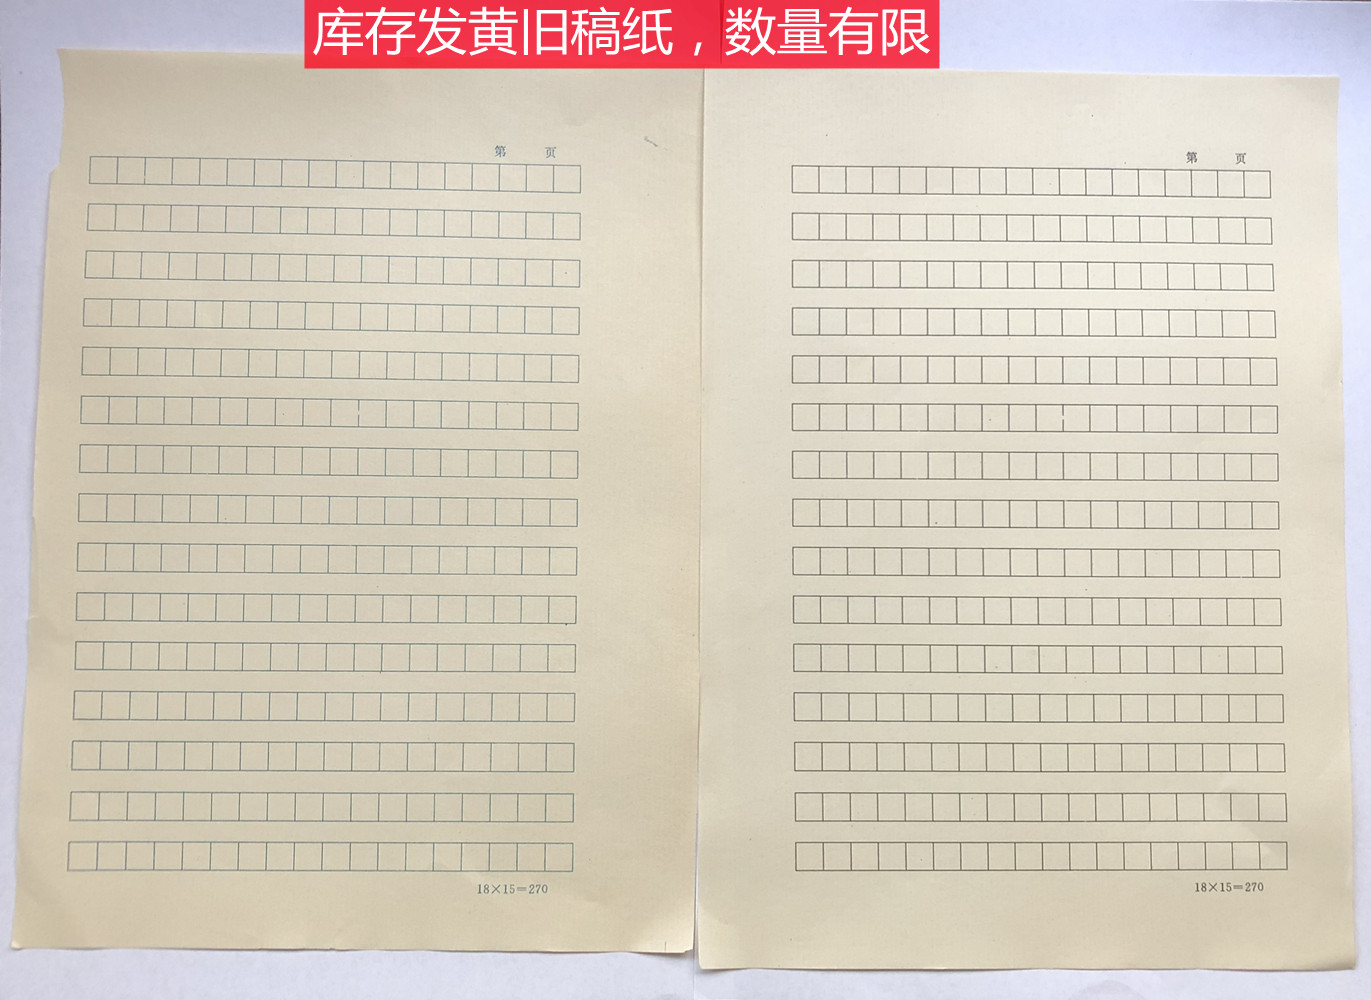 库存发黄旧稿纸，数量有限
第 页
18×15=270
第 页
18×15=270